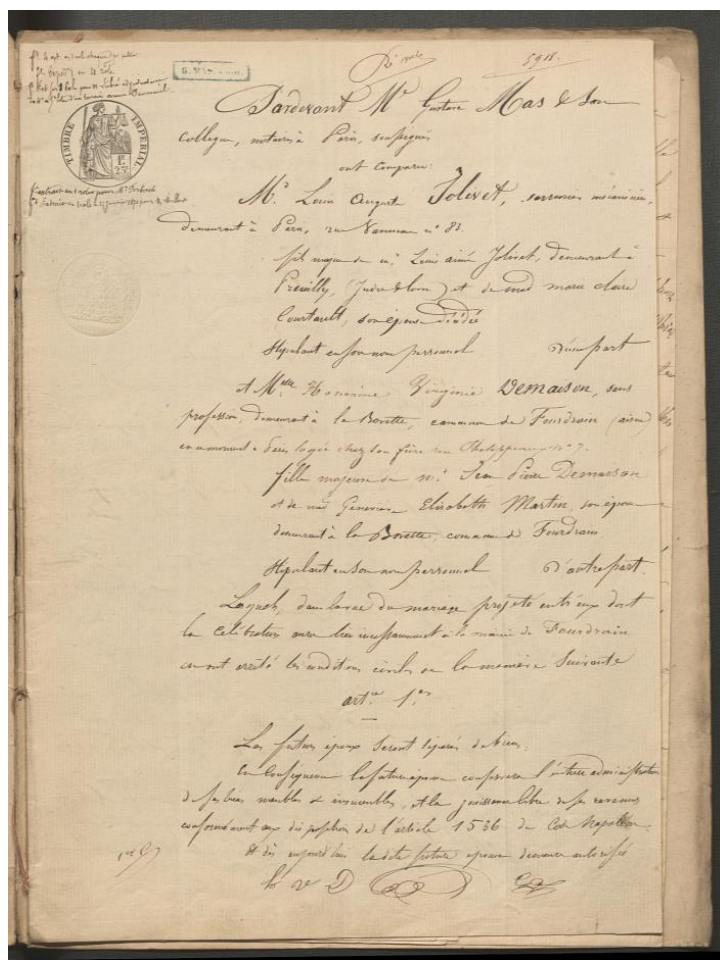 5918.
TIMBRE IMPERIAL
Pardevant Me Gustave Mas & Son
Collègue, notaires à Paris, soussignés
ont comparu:
Mr. Louis Auguste Jolivet, serrurier mécanicien,
demeurant à Paris, rue Vanneau no 83.
fils majeur de mr. Louis aimé Jolivet, demeurant à
Preuilly, (Indre & Loire) et de mad marie claire
Courtault, son épouse décédée
Stipulant en son nom personnel D'une part
et Melle Honorine Virginie Demaison, sans
profession, demeurant à la Bovette, commune de Fourdrain (aisne)
en ce moment à Paris logée chez son frère rue no 7.
fille majeure de mr. Jean Pierre Demaison
et de mad Geneviève Elisabeth Martin, son épouse
demeurant à la Bovette, commune de Fourdrain.
Stipulant en son nom personnel D'autre part.
Lesquels, dans la vue du mariage projeté entre eux dont
la célébration aura lieu incessamment à la mairie de Fourdrain
en ont arrêté les conditions civiles de la manière suivante
art.cle 1.er
Les futurs époux seront séparés de biens.
En conséquence la future épouse conservera l'entière administration
de ses biens meubles & immeubles, et la jouissance libre de ses revenus
conformément aux dispositions de l'article 1536 du Code Napoléon.
Et dès aujourd'hui la dite future épouse demeure autorisée
h v D